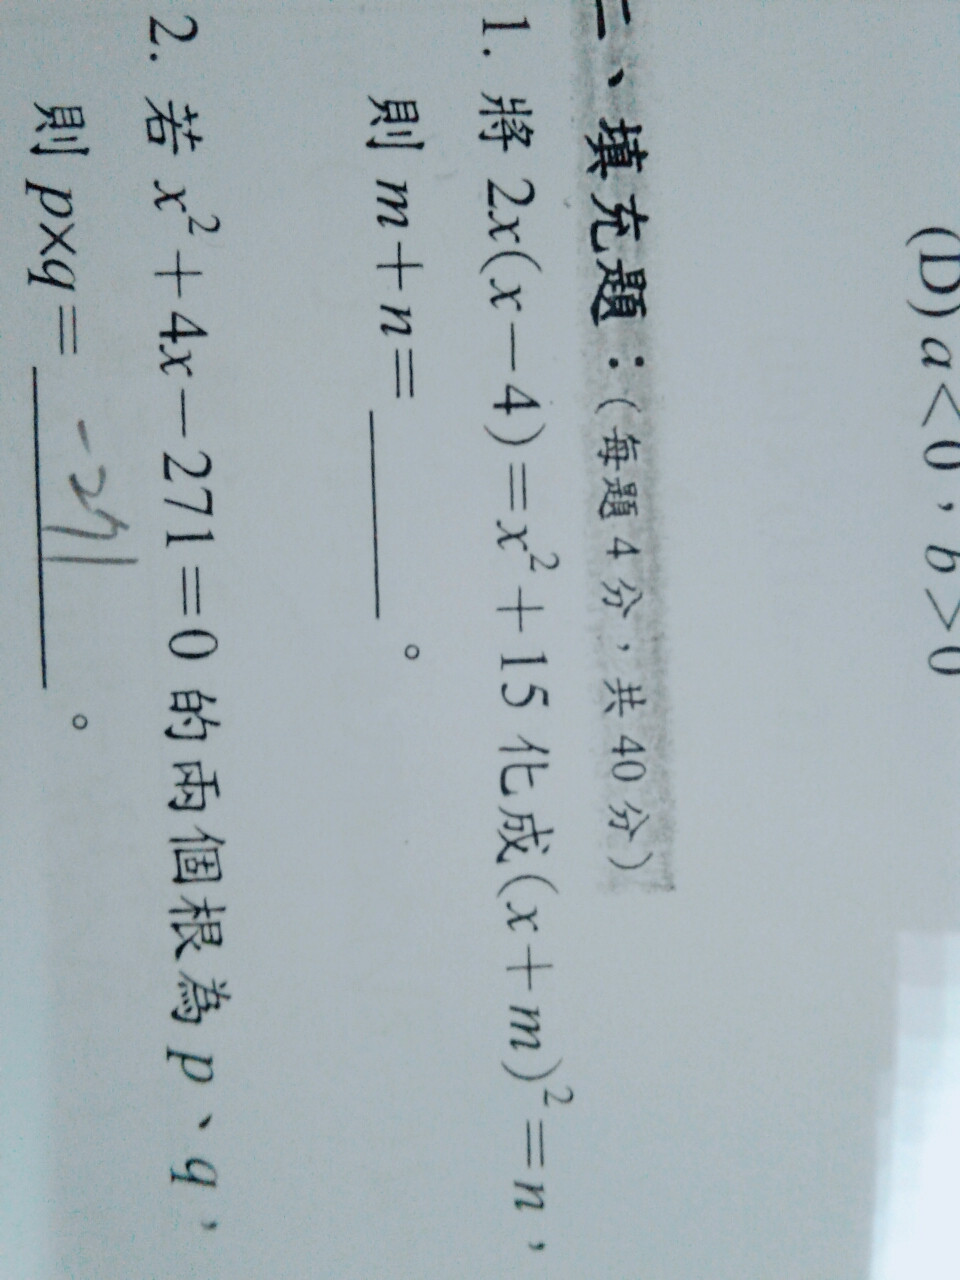 (D) a<0，b>0
二、填充題：(每題 4 分，共 40 分)
1. 將 2x(x−4)=x²+15 化成(x+m)²=n，
則 m+n=＿＿＿＿。
2. 若 x²+4x−271=0 的兩個根為 p、q，
則 p×q= -271 。